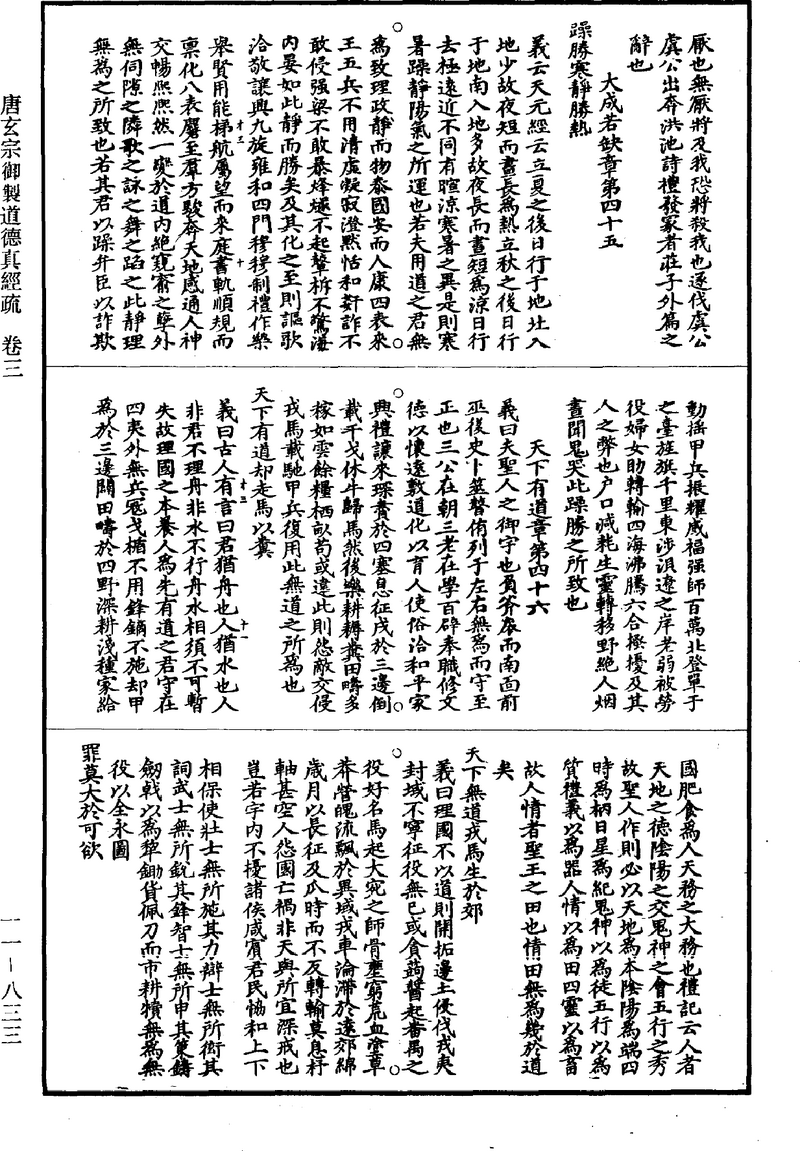 厭也無厭將及我恐將殺我也遂伐虞公
虞公出奔洪池詩禮發冢者莊子外篇之
辭也
大成若缺章第四十五
躁勝寒靜勝熱
義云天元經云立夏之後日行于地北入
地少故夜短而晝長為熱立秋之後日行
于地南入地多故夜長而晝短為涼日行
去極遠近不同有暄涼寒暑之異是則寒
暑躁靜陽氣之所運也若夫用道之君無
為致理政靜而物泰國安而人康四表來
王五兵不用清虛凝寂澄默恬和姧詐不
敢侵强梁不敢暴烽燧不起鼙柝不驚海
內晏如此靜而勝矣及其化之至則謳歌
洽敬讓興九族雍和四門穆穆制禮作樂
舉賢用能梯航屬望而來庭書軌順規而
稟化八表屬至羣方駿奔天地感通人神
交暢熙熙然一變於道內絕窺窬之孽外
無伺隙之隣歌之詠之舞之蹈之此靜理
無為之所致也若其君以躁弁臣以詐欺
動搖甲兵振耀威福强師百萬北登單于
之臺旌旗千里東涉浿遼之岸老弱被勞
役婦女助轉輸四海沸騰六合極擾及其
人之弊也户口減耗生靈轉移野絕人烟
晝聞鬼哭此躁勝之所致也
天下有道章第四十六
義曰夫聖人之御宇也負斧扆而南面前
巫後史卜筮瞽侑列于左右無為而守至
正也三公在朝三老在學百辟奉職修文
德以懷遠敷道化以育人使俗洽和平家
興禮讓來琛賮於四塞息征戍於三邊倒
載干戈休牛歸馬然後樂耕耨糞田疇多
稼如雲餘糧栖畝苟或違此則怨敵交侵
戎馬載馳甲兵復用此無道之所為也
天下有道却走馬以糞
義曰古人有言曰君猶舟也人猶水也人
非君不理舟非水不行舟水相須不可暫
失故理國之本養人為先有道之君守在
四夷外無兵寇戈楯不用鋒鏑不施却甲
馬於三邊闢田疇於四野深耕淺種家給
國肥食為人天務之大務也禮記云人者
天地之德陰陽之交鬼神之會五行之秀
故聖人作則必以天地為本陰陽為端四
時為柄日星為紀鬼神以為徒五行以為
質禮義以為器人情以為田四靈以為畜
故人情者聖王之田也情田無為幾於道
矣
天下無道戎馬生於郊
義曰理國不以道則開拓邊土侵伐戎夷
封域不寧征役無已或貪蒟醬起番禺之
役好名馬起大宛之師骨壅窮荒血塗草
莽營魄流飄於異域戎車淪滯於遠郊綿
歲月以長征及瓜時而不反轉輸莫息杼
軸甚空人怨國亡禍非天與所宜深戒也
豈若宇內不擾諸侯咸賓君民恊和上下
相保使壯士無所施其力辯士無所衒其
詞武士無所銳其鋒智士無所申其筞鑄
劒戟以為犂鋤貨佩刀而市耕犢無為無
役以全永圖
罪莫大於可欲
十三
十
十三
十一
唐玄宗御製道德真經疏 卷三
一一-八三三